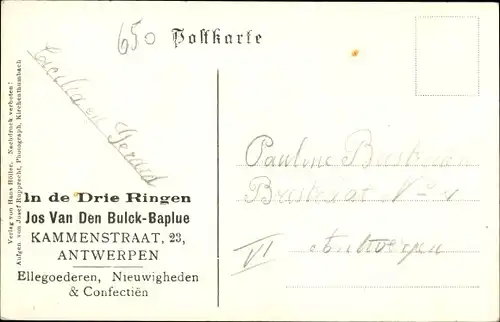 650
Postkarte
Cecilia en Gerard
Verlag von Hans Höller. Nachdruck verboten!
Aufgen. von Josef Rupprecht, Photograph, Kirchenthumbach
In de Drie Ringen
Jos Van Den Bulck-Baplue
KAMMENSTRAAT, 23,
ANTWERPEN
Ellegoederen, Nieuwigheden
& Confectiën
Pauline
VI Antwerpen